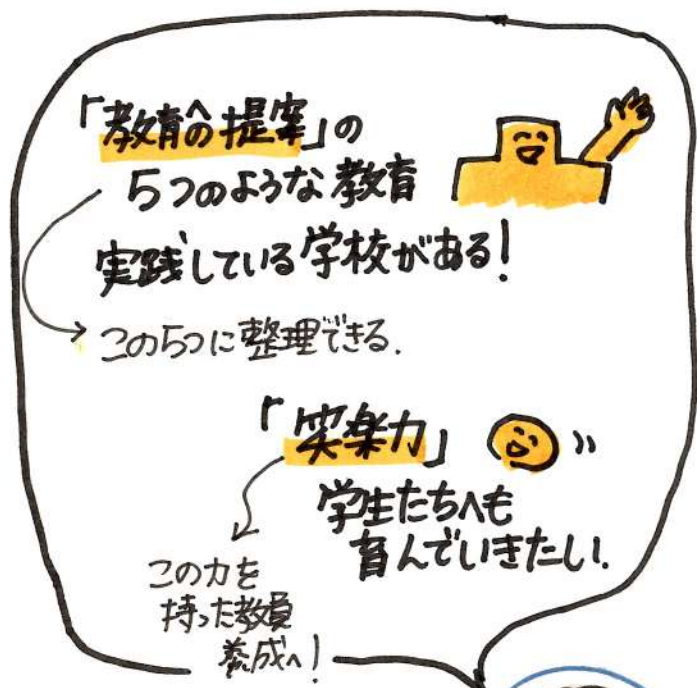 「教育への提案」の
5つのような教育
実践している学校がある!
この5つに整理できる.
「笑楽力」
学生たちへも
育んでいきたい!
この力を
持った教員
養成へ!